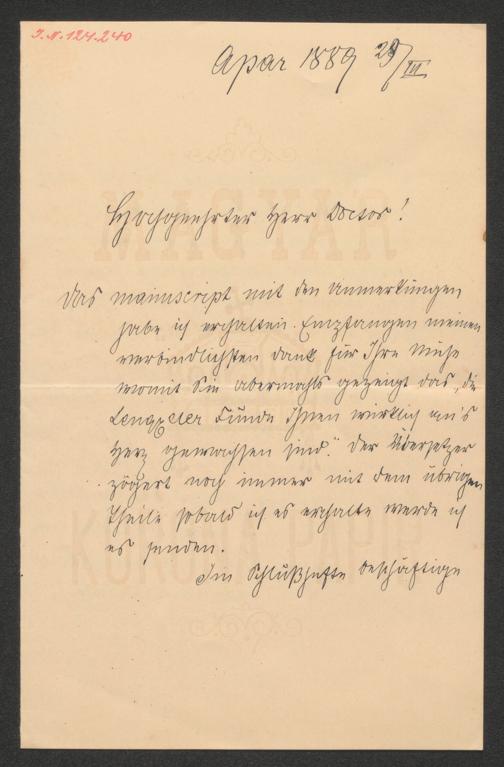 I.N. 124.240
Apar 1889 29/III
Hochgeehrter Herr Doctor!
Das manuscript mit den Anmerkungen
habe ich erhalten. Empfangen meinen
verbindlichsten dank für Ihre Mühe
womit Sie abermahls gezeigt das, „die
Lengyeler Funde Ihnen wirklich an's
Herz gewachsen sind." Der Übersetzer
zögert noch immer mit dem übrigen
Theile sobald ich es erhalte werde ich
es senden.
Im Schlußhefte beschäftige
MAGYAR
KORONA PAPIR